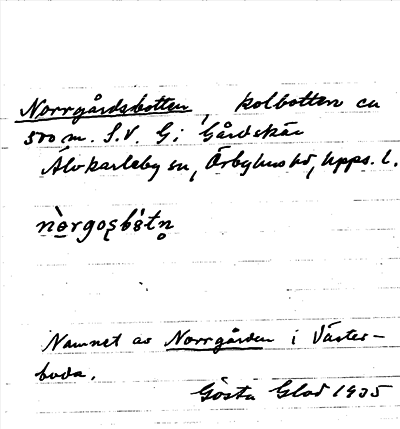 Norrgårdsbotten, kolbotten ca
500 m. S.V. G; Gårdskär
Älvkarleby sn, Örbyhus hd, Upps. l.
nòrgosbótn
Namnet av Norrgården i Väster-
boda.
Gösta Glad 1935